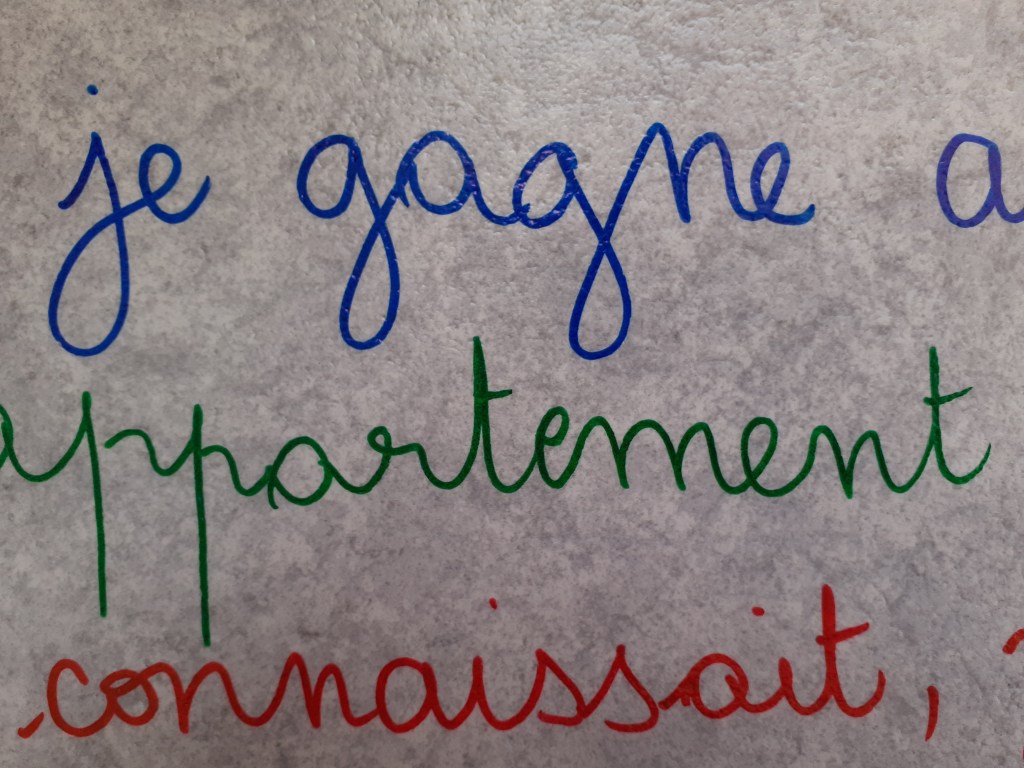 je gagne a
appartement
connaissait,